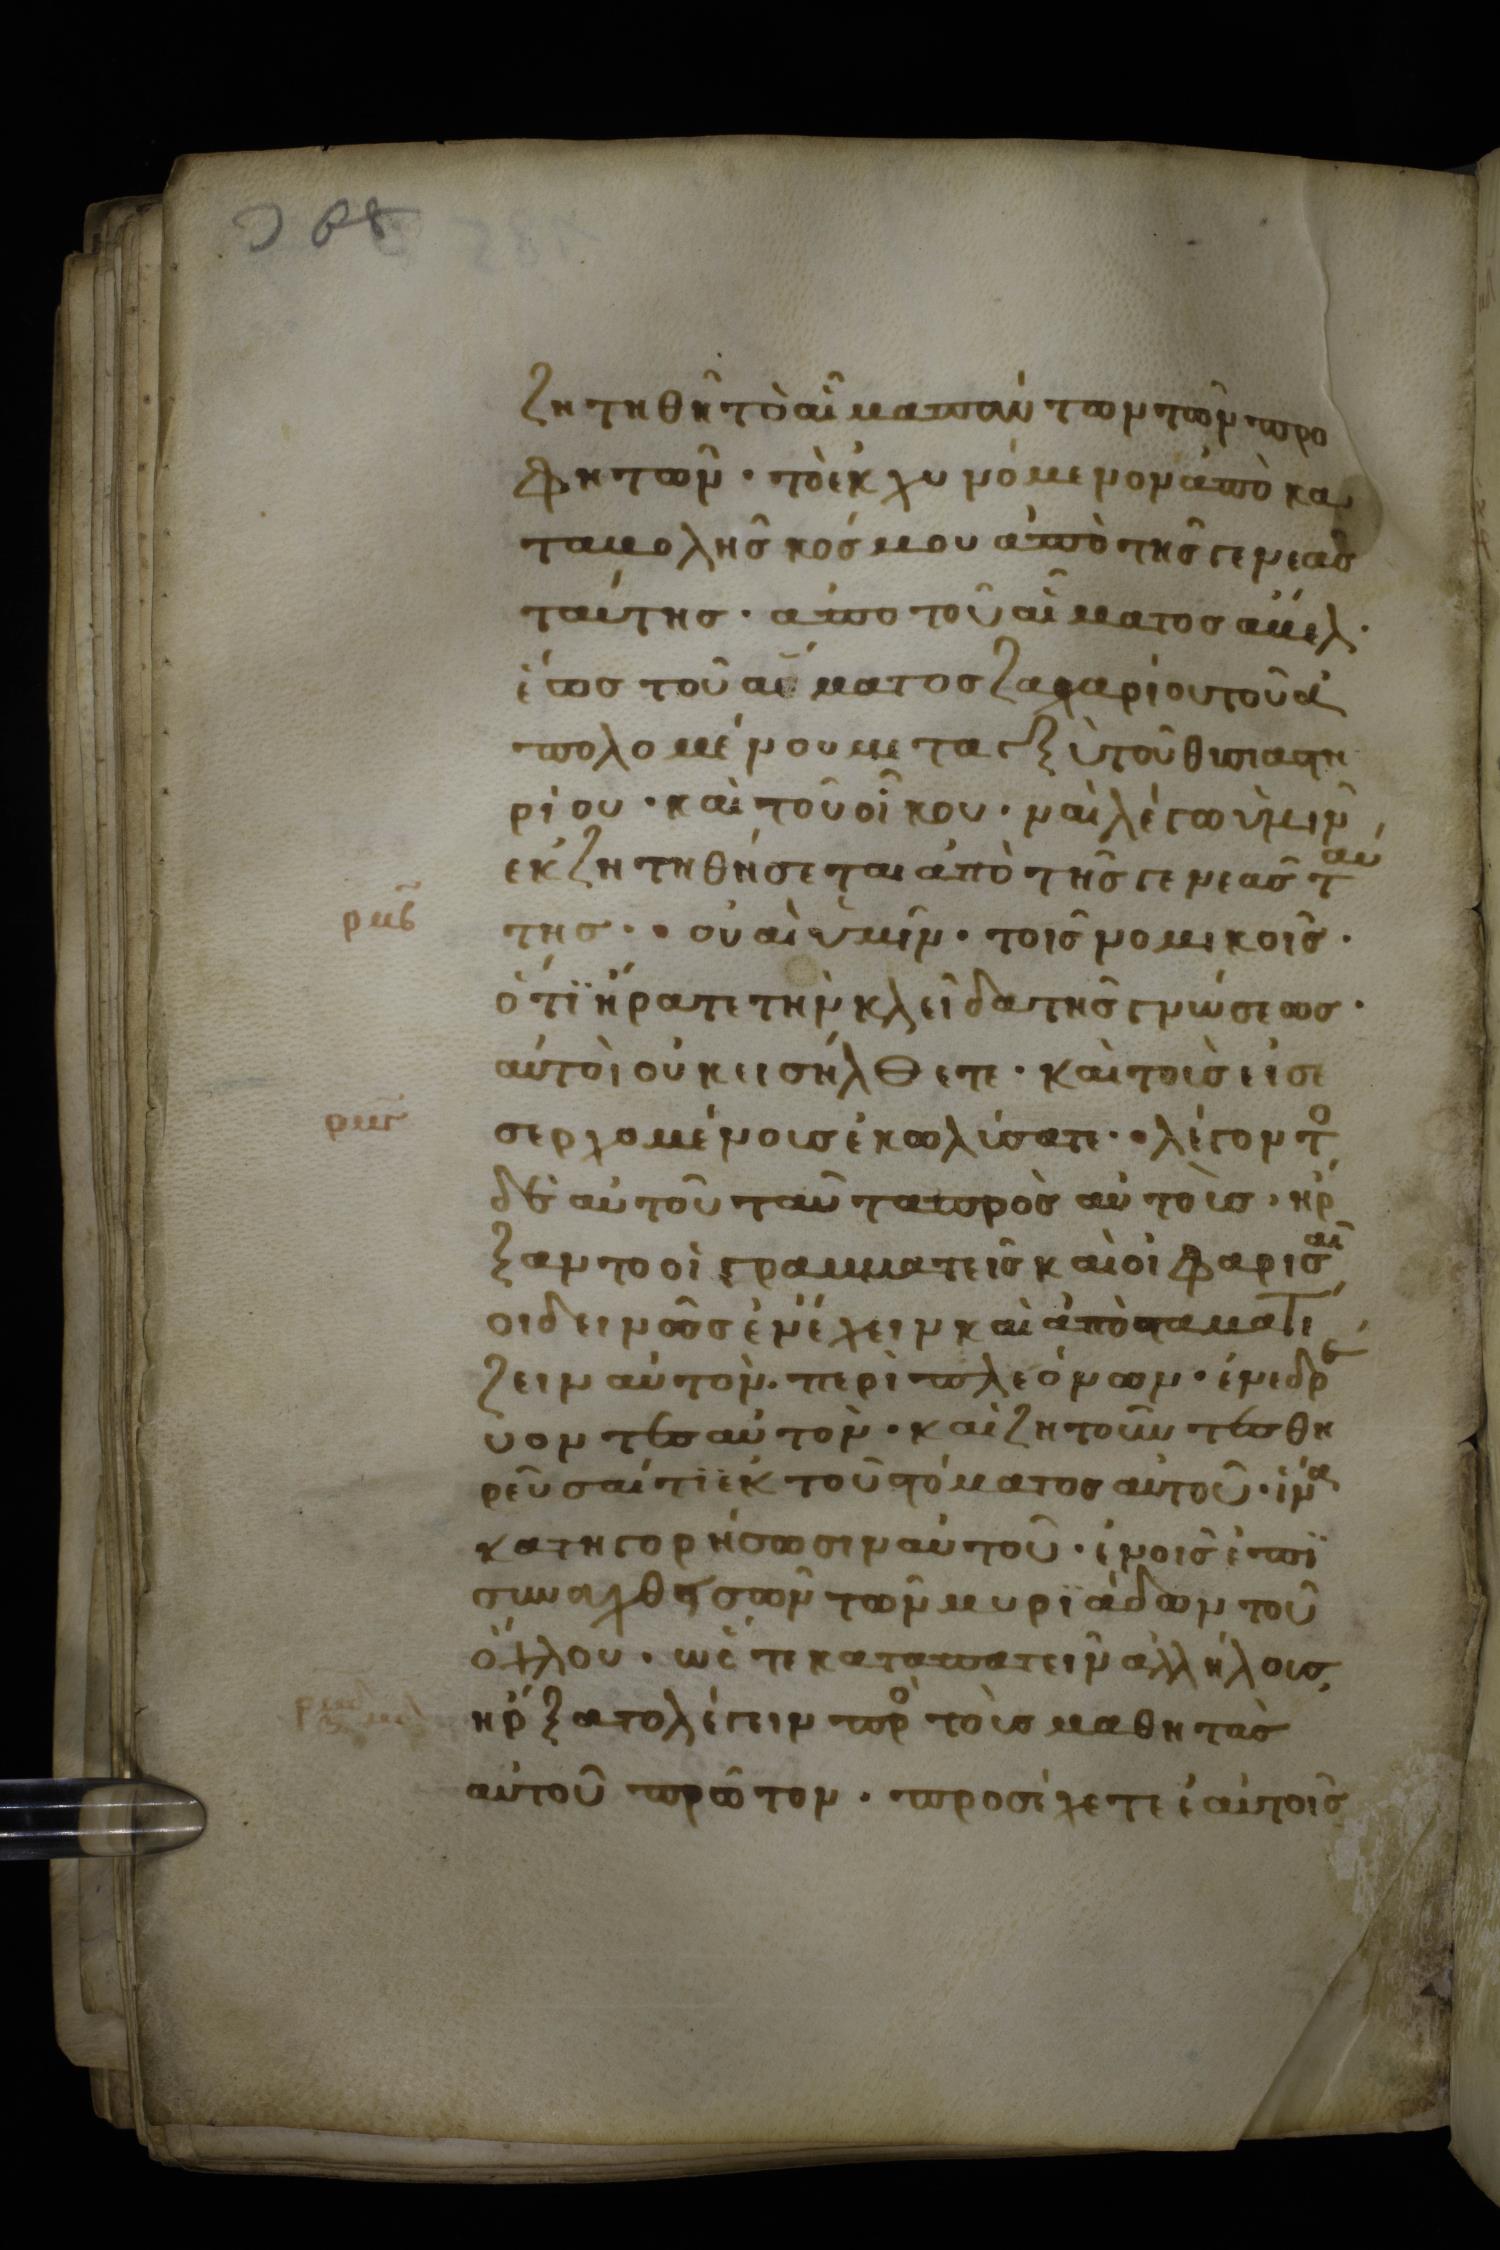 ζητηθῆ τὸ αἷμα πάντων τῶν προ
φητῶν · τὸ ἐκχυνόμενον ἀπὸ κα
ταβολῆς κόσμου ἀπὸ τῆς γενεᾶς
ταύτης · ἀπο τοῦ αἵματος ἄβελ ·
ἕως τοῦ αἵματος ζαχαρίου τοῦ ἀ
πολομένου μεταξὺ τοῦ θυσιαστη
ρίου · καὶ τοῦ οἴκου · ναὶ λέγω ὑμῖν
ἐκζητηθήσεται ἀπὸ τῆς γενεᾶς ταύ
ρμβ της · · οὐαὶ ὑμῖν · τοῖς νομικοῖς ·
ὅτϊ ἤρατε τὴν κλεῖδα τῆς γνώσεως ·
αὐτοὶ οὐκ εισήλθετε · καὶ τοὺς εἰσε
ρμγ σερχομένους ἐκωλύσατε · · λέγοντο
δὲ αὐτοῦ ταῦτα πρὸς αὐτοὺς · ἤρ
ξαντο οἱ γραμματεῖς καὶ οἱ φαρισαῖ
οι δεινῶς ἐνέχειν καὶ ἀποστοματί
ζειν αὐτὸν · περὶ πλεόνων · ἐνεδρέ
ύοντες αὐτὸν · καὶ ζητοῦντες θη
ρεῦσαί τϊ ἐκ τοῦ στόματος αὐτοῦ · ἵνα
κατηγορήσωσιν αὐτοῦ · ἐν οἷς ἐπϊ
συναχθησῶν τῶν μυρϊάδων τοῦ
ὄχλου · ὡς τε καταπατεῖν ἀλλήλους
ἤρξατο λέγειν προ τοὺς μαθητὰς
αὐτοῦ πρῶτον · προσέχετε ἑαυτοῖς